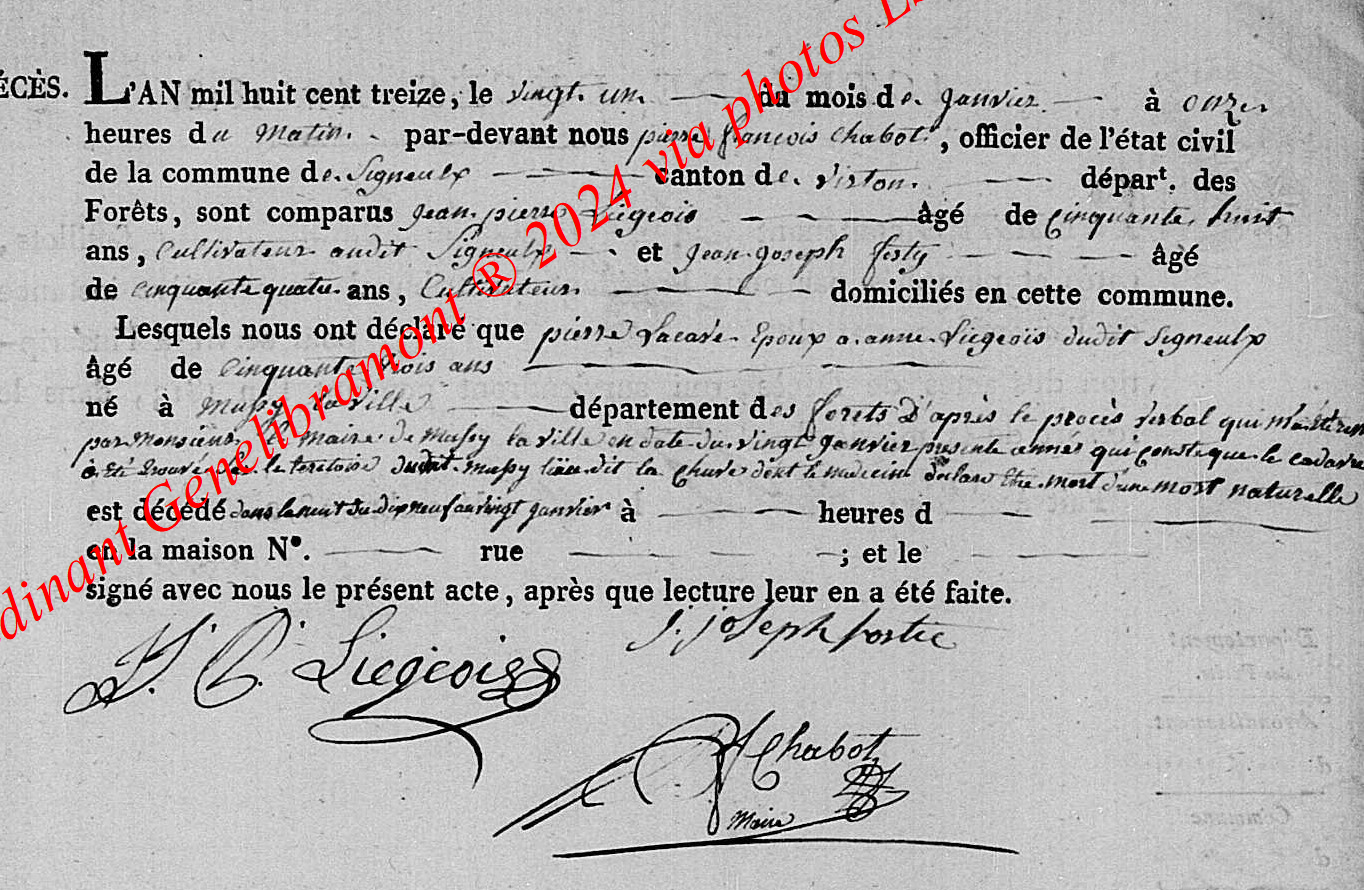 ÉCÈS. L'AN mil huit cent treize, le vingt un du mois de janvier à onze
heures du Matin par-devant nous pierre françois Chabot, officier de l'état civil
de la commune de Signeulx canton de virton. départ. des
Forêts, sont comparus jean pierre Liégeois âgé de cinquante huit
ans, Cultivateur audit Signeulx et jean joseph âgé
de cinquante quatre ans, Cultivateur domiciliés en cette commune.
Lesquels nous ont déclaré que pierre Lacave Epoux a anne Liegeois dudit Signeulx
âgé de Cinquante trois ans
né à Mussy la ville département des forets D'après le procès verbal qui
par Monsieur le Maire de Mussy la ville en date du vingt janvier presente année qui que le cadavre
a été trouvé le teritoire dudit Mussy dit la dont le medecin declare être mort d'une mort naturelle
est décédé dans la nuit du dix neuf au vingt janvier à heures d
en la maison N°. rue ; et le
signé avec nous le présent acte, après que lecture leur en a été faite.
J. P. Liegeois J. joseph
Chabot
Maire
dinant Genelibramont ® 2024 via photos
Département
Arrondissement
d
Commune
d